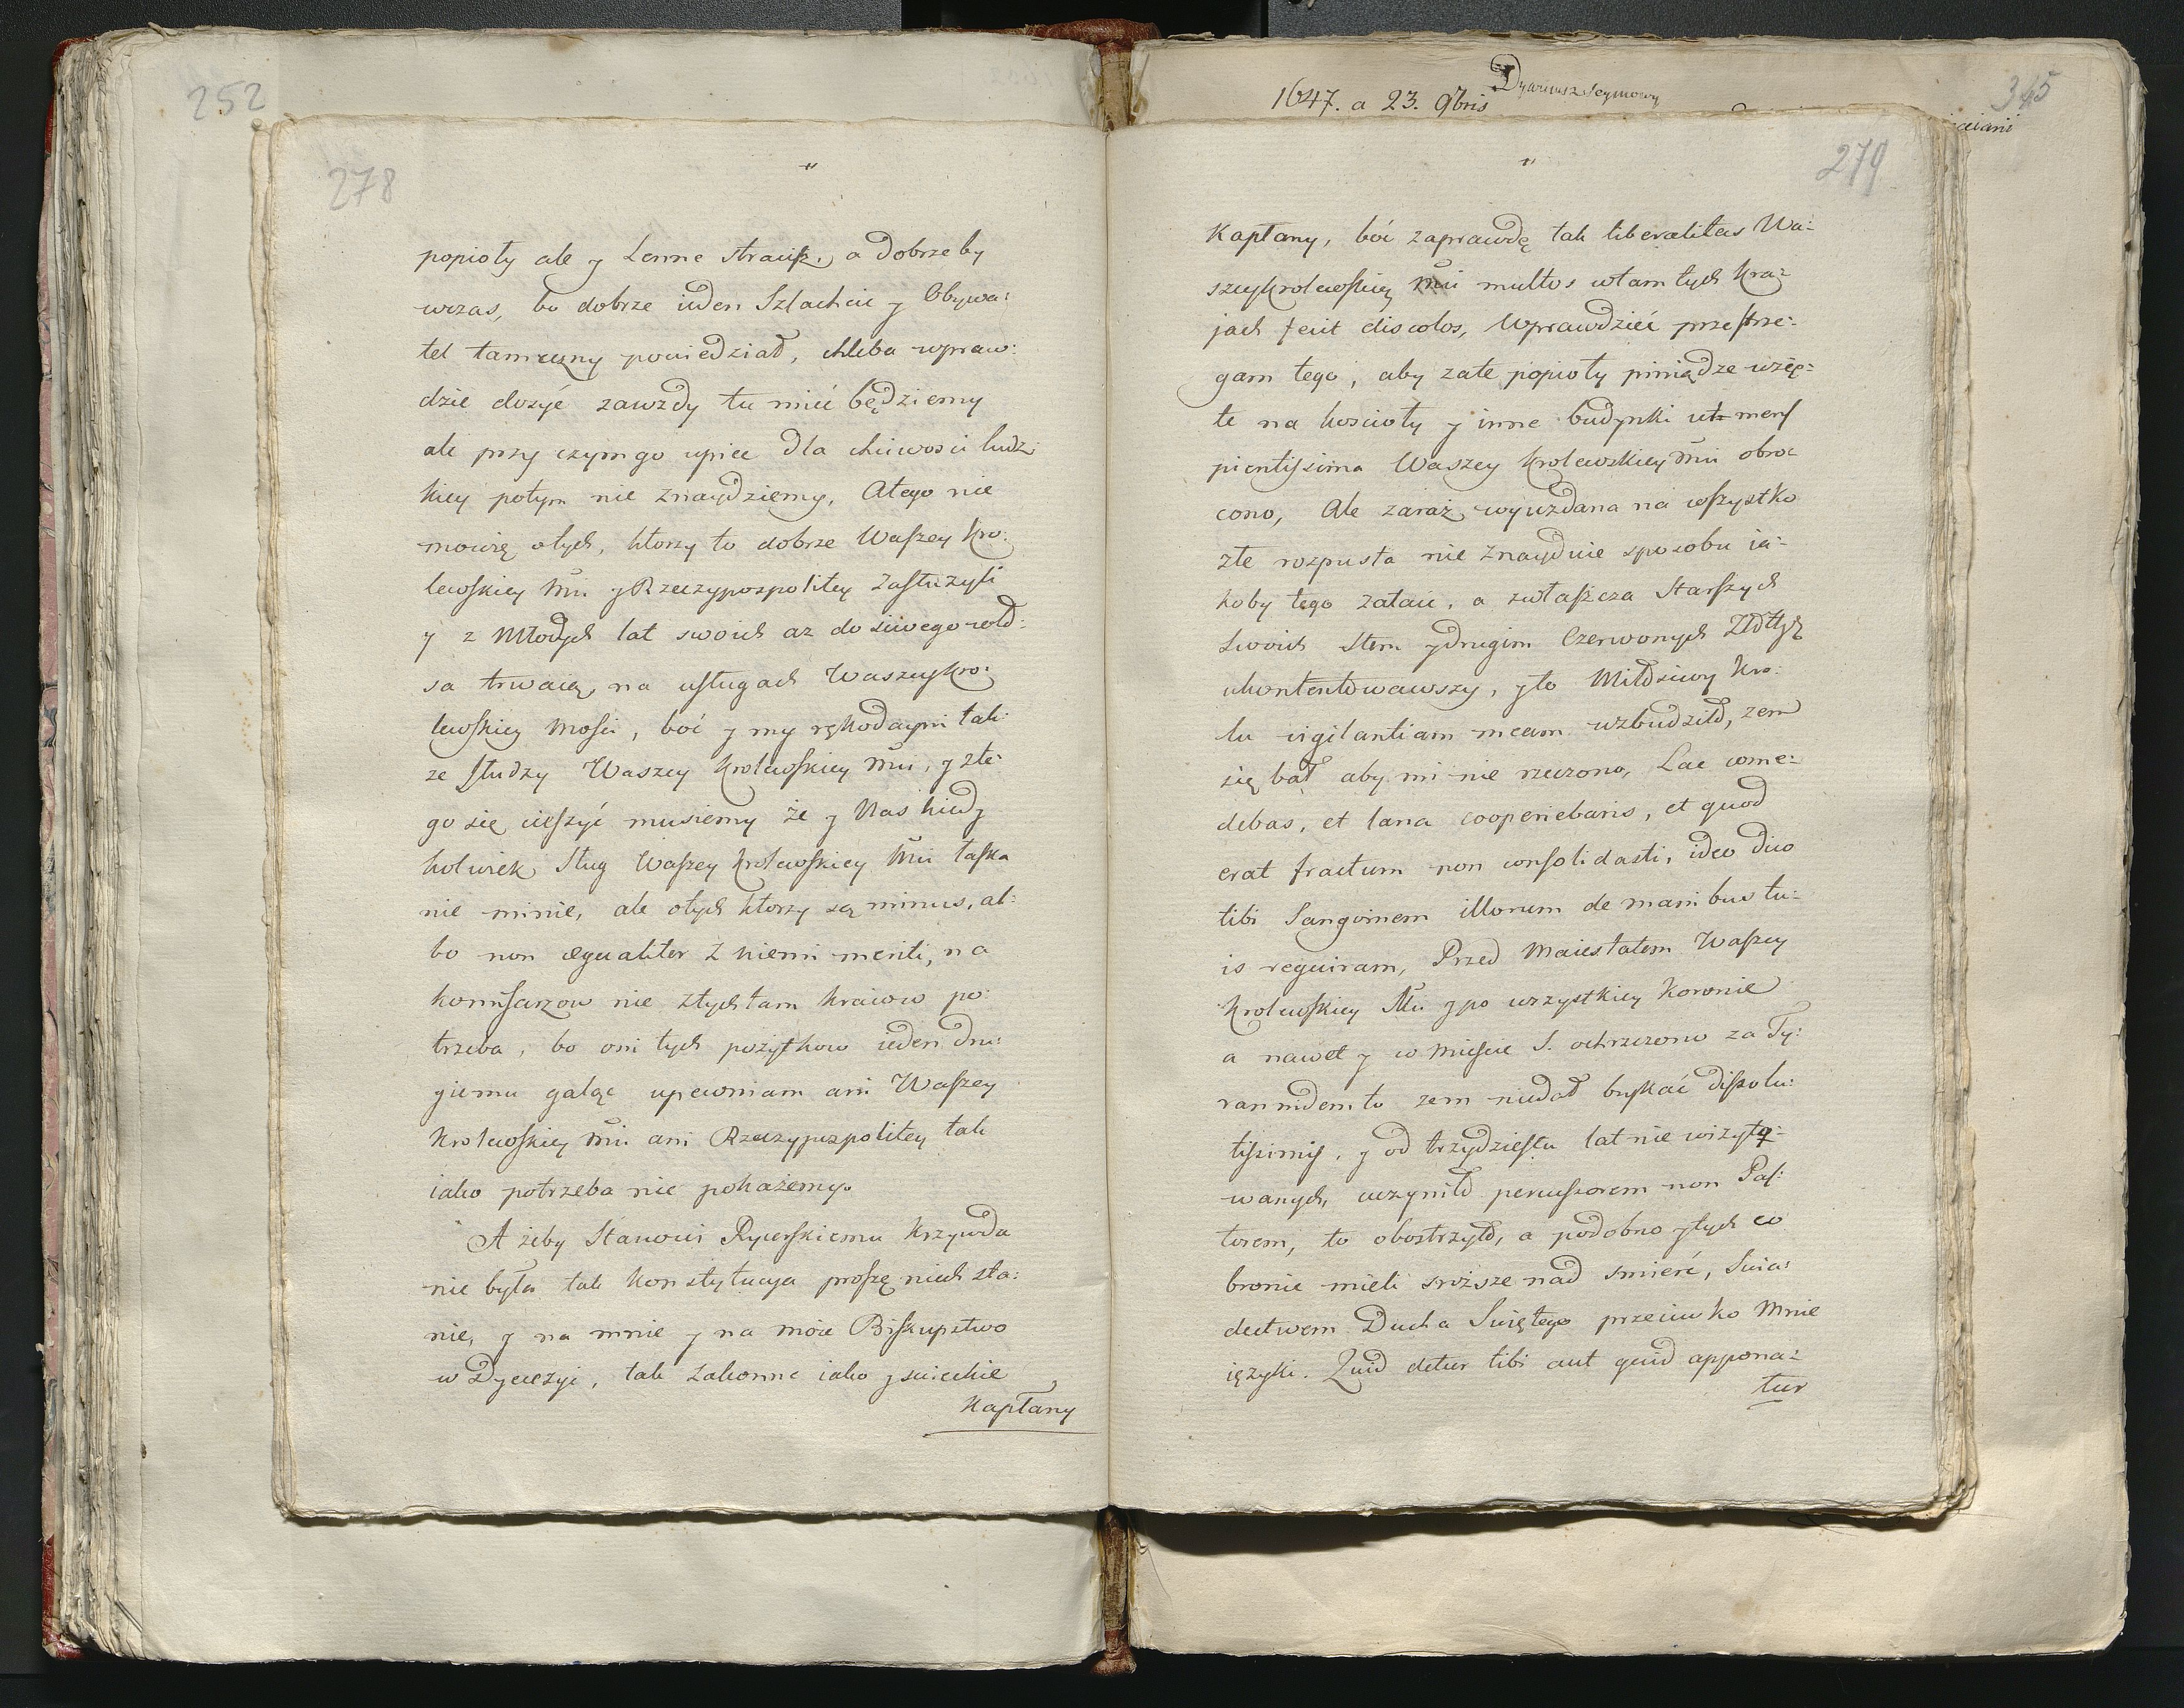 252
278
popioły ale y Lenne straiß. a dobrze by
wczas, bo dobrze ieden Szlachcic y Obywa:
tel tameczny powiedział, chleba wpraw:
dzie dosyć zawzdy tu mieć będziemy
ale przy czym go upiec dla chciwości ludz:
kiey potym nie znaydziemy, Atego nie
mowię otych, ktorzy to dobrze Waszey Kro:
lewskiey Mci y Rzeczypospolitey zasłużyli
y z Młodych lat swoich az do siwego wło:
sa trwaią, na usługach Waszey Kro:
lewskiey Mości, boć y my rękodayni tak:
ze słudzy Waszey Krolewskiey Mci, y zte:
go się cieszyć musiemy że y Nas kiedy
kolwiek Sług Waszey Krolewskiey Mci łaska
nie minie, ale otych ktorzy są minus, al:
bo non æqualiter z niemi meriti, na
komisarzow nie ztych tam kraiow po:
trzeba, bo oni tych pożytkow ieden dru:
giemu galąc upewniam ani Waszey
Krolewskiey Mci ani Rzeczypospolitey tak
iako potrzeba nie pokażemy.
A żeby Stanowi Rycerskiemu krzywda
nie była tak konstytucya proszę niech sta:
nie, y na mnie y na moie Biskupstwo
w Dyecezyi, tak zakonne iako y swieckie
Kapłany
1647. a 23. 9bris
Dyariusz Seymowy
345
279
Kapłany, boć zaprawdę tak liberalitas Wa:
szey Krolewskiey Mci multos wtam tych Kra:
jach fecit discolos, Wprawdzieć przestrze:
gam tego, aby zate popioły piniądze wzię:
te na kościoły y inne budynki ut mens
pientissima Waszey Krolewskiey Mci obro:
cono, Ale zaraz wyuzdana na wszystko
złe rozpusta nie znayduie sposobu ia:
koby tego zataić, a zwłaszcza Starszych
swoich stem y drugim Czerwonych Złotych
ukontentowawszy, y to Miłosciwy Kro:
lu vigilantiam meam wzbudziło, zem
się bał aby mi nie rzeczono, Lac come:
debas, et lana cooperiebaris, et quod
erat fractum non consolidasti, ideo duo
tibi Sangvinem illorum de manibus tu:
is requiram, Przed Maiestatem Waszey
Krolewskiey Mci y po wszystkiey Koronie
a nawet y w Mieście S. ochrzczono za Ty:
rannidem to zem niedał buskać dissolu:
tissimis, y od trzydziestu lat nie wizyto:
wanych, uczyniło percussorem non Pas:
torem, to obostrzyło, a podobno y tych co
bronie mieli sroższe nad śmierć, Swia:
dectwem Ducha Swiętego przeciwko Mnie
ięzyki. Quid detur tibi aut quid appona:
tur